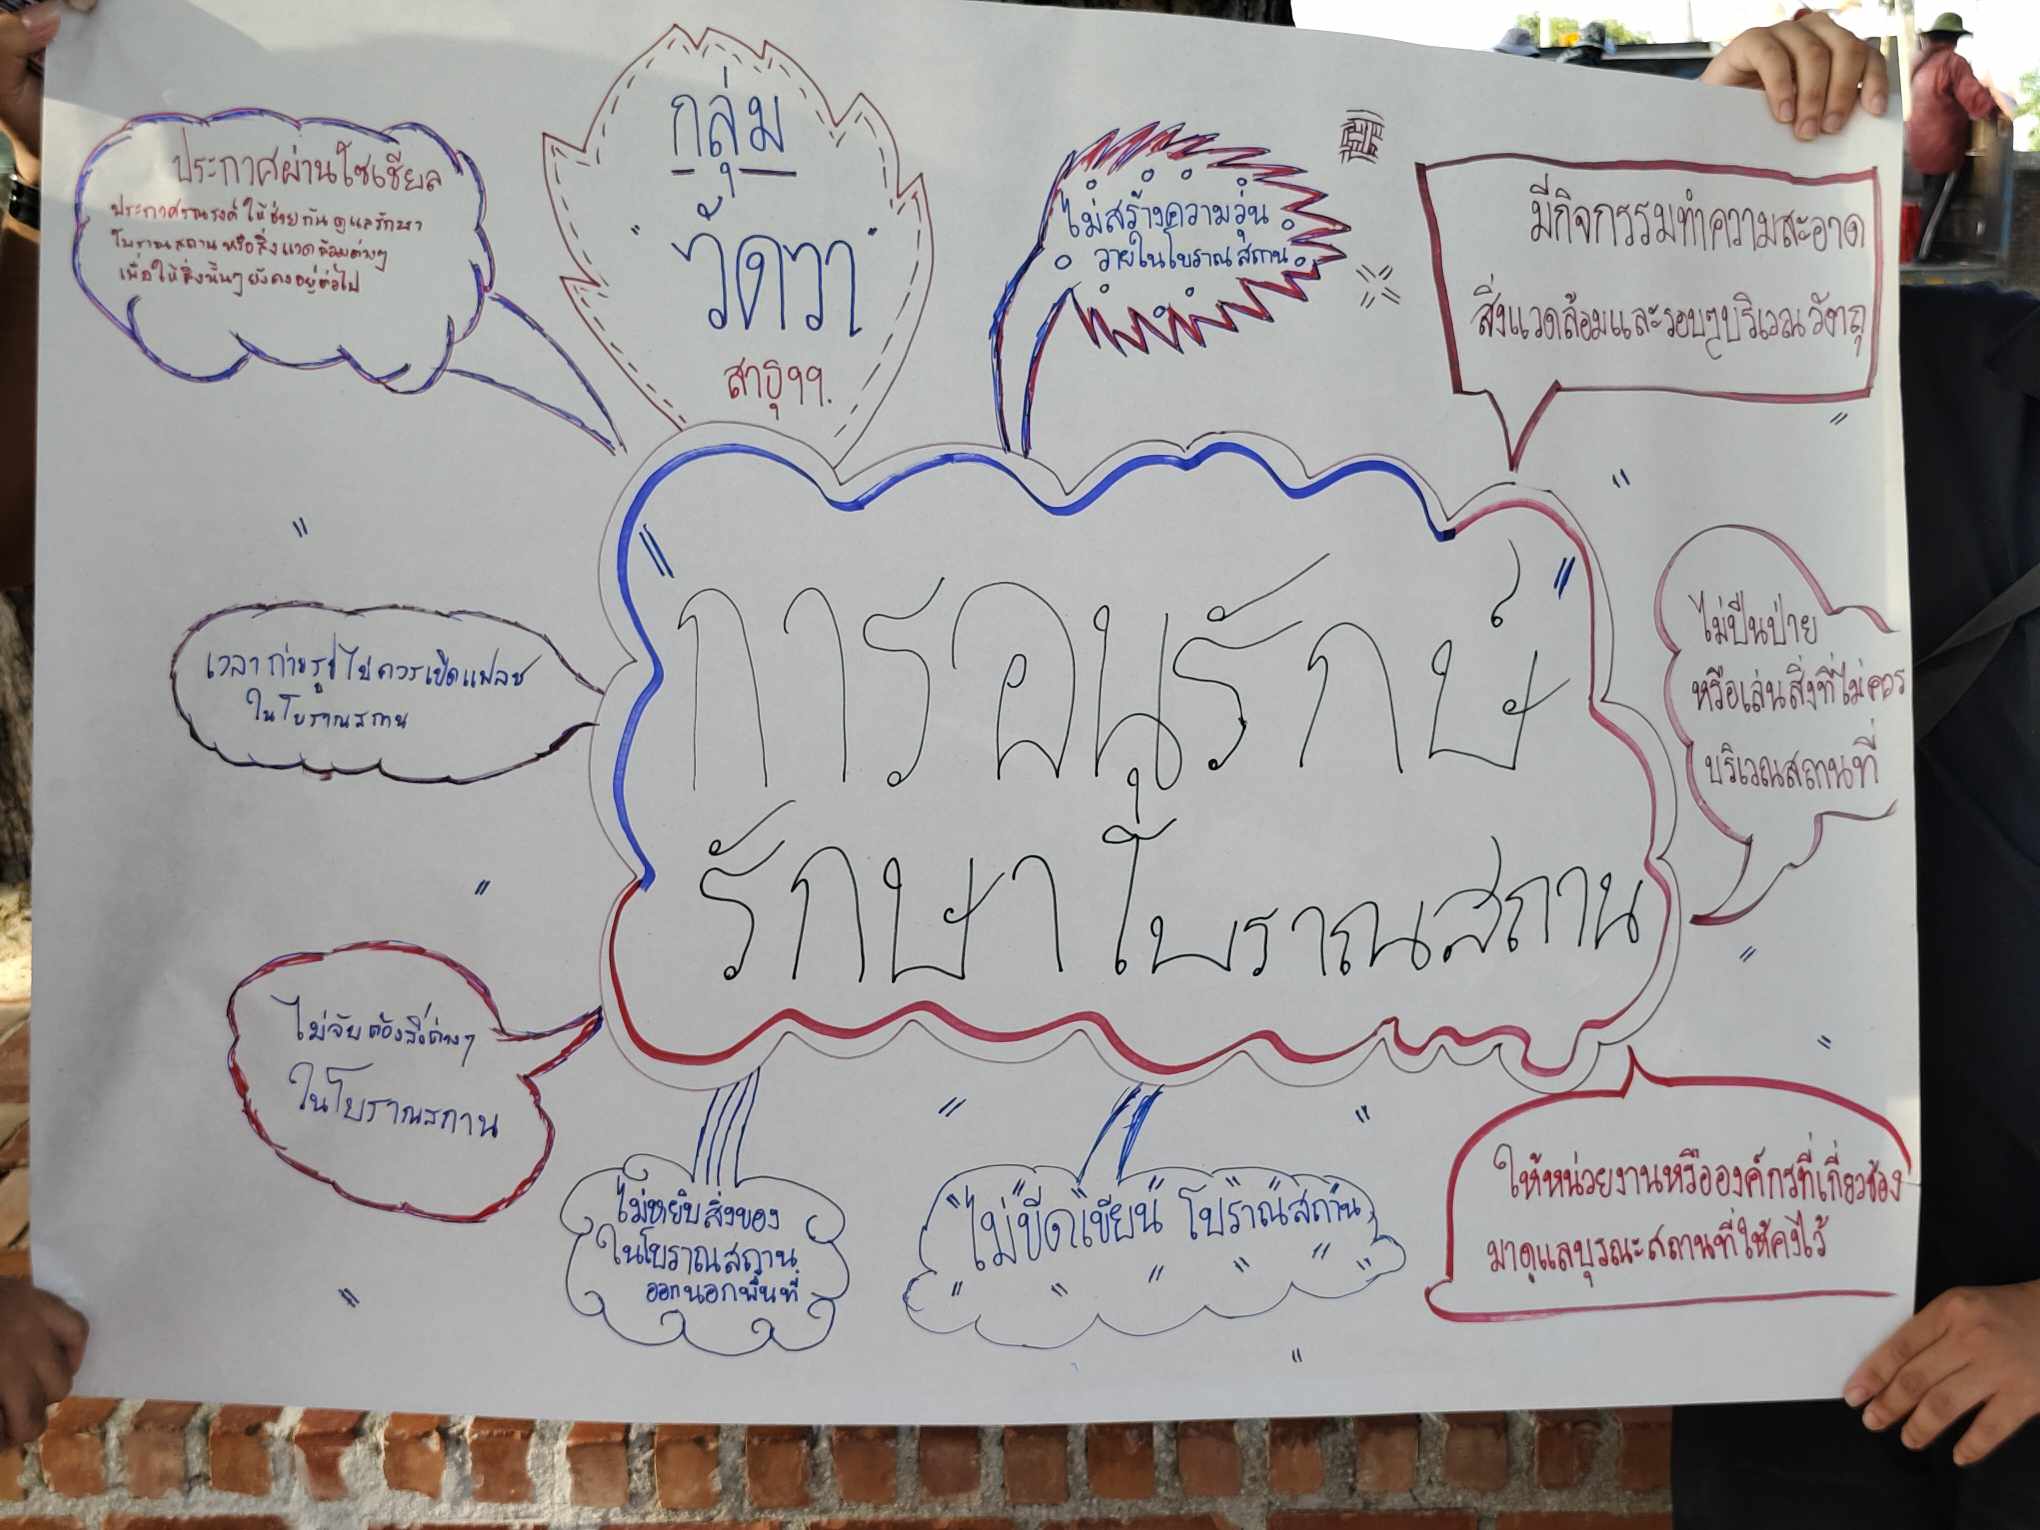 กลุ่ม
"วัดวา"
สาธุๆๆ.
ประกาศผ่านโซเชียล
ประกาศรณรงค์ ให้ช่วยกันดูแลรักษา
โบราณสถาน หรือสิ่งแวดล้อมต่างๆ
เพื่อให้สิ่งนั้นๆ ยังคงอยู่ต่อไป
ไม่สร้างความวุ่น
วายในโบราณสถาน
มีกิจกรรมทำความสะอาด
สิ่งแวดล้อมและรอบๆบริเวณ
"การอนุรักษ์"
รักษาโบราณสถาน
เวลาถ่ายรูปไม่ควรเปิดแฟลช
ในโบราณสถาน
ไม่ปีนป่าย
หรือเล่นสิ่งที่ไม่ควร
บริเวณสถานที่
ไม่จับต้องสิ่งต่างๆ
ในโบราณสถาน
ไม่หยิบสิ่งของ
ในโบราณสถาน
ออกนอกพื้นที่
ไม่ขีดเขียน โบราณสถาน
ให้หน่วยงานหรือองค์กรที่เกี่ยวข้อง
มาดูแลบูรณะสถานที่ให้คงไว้